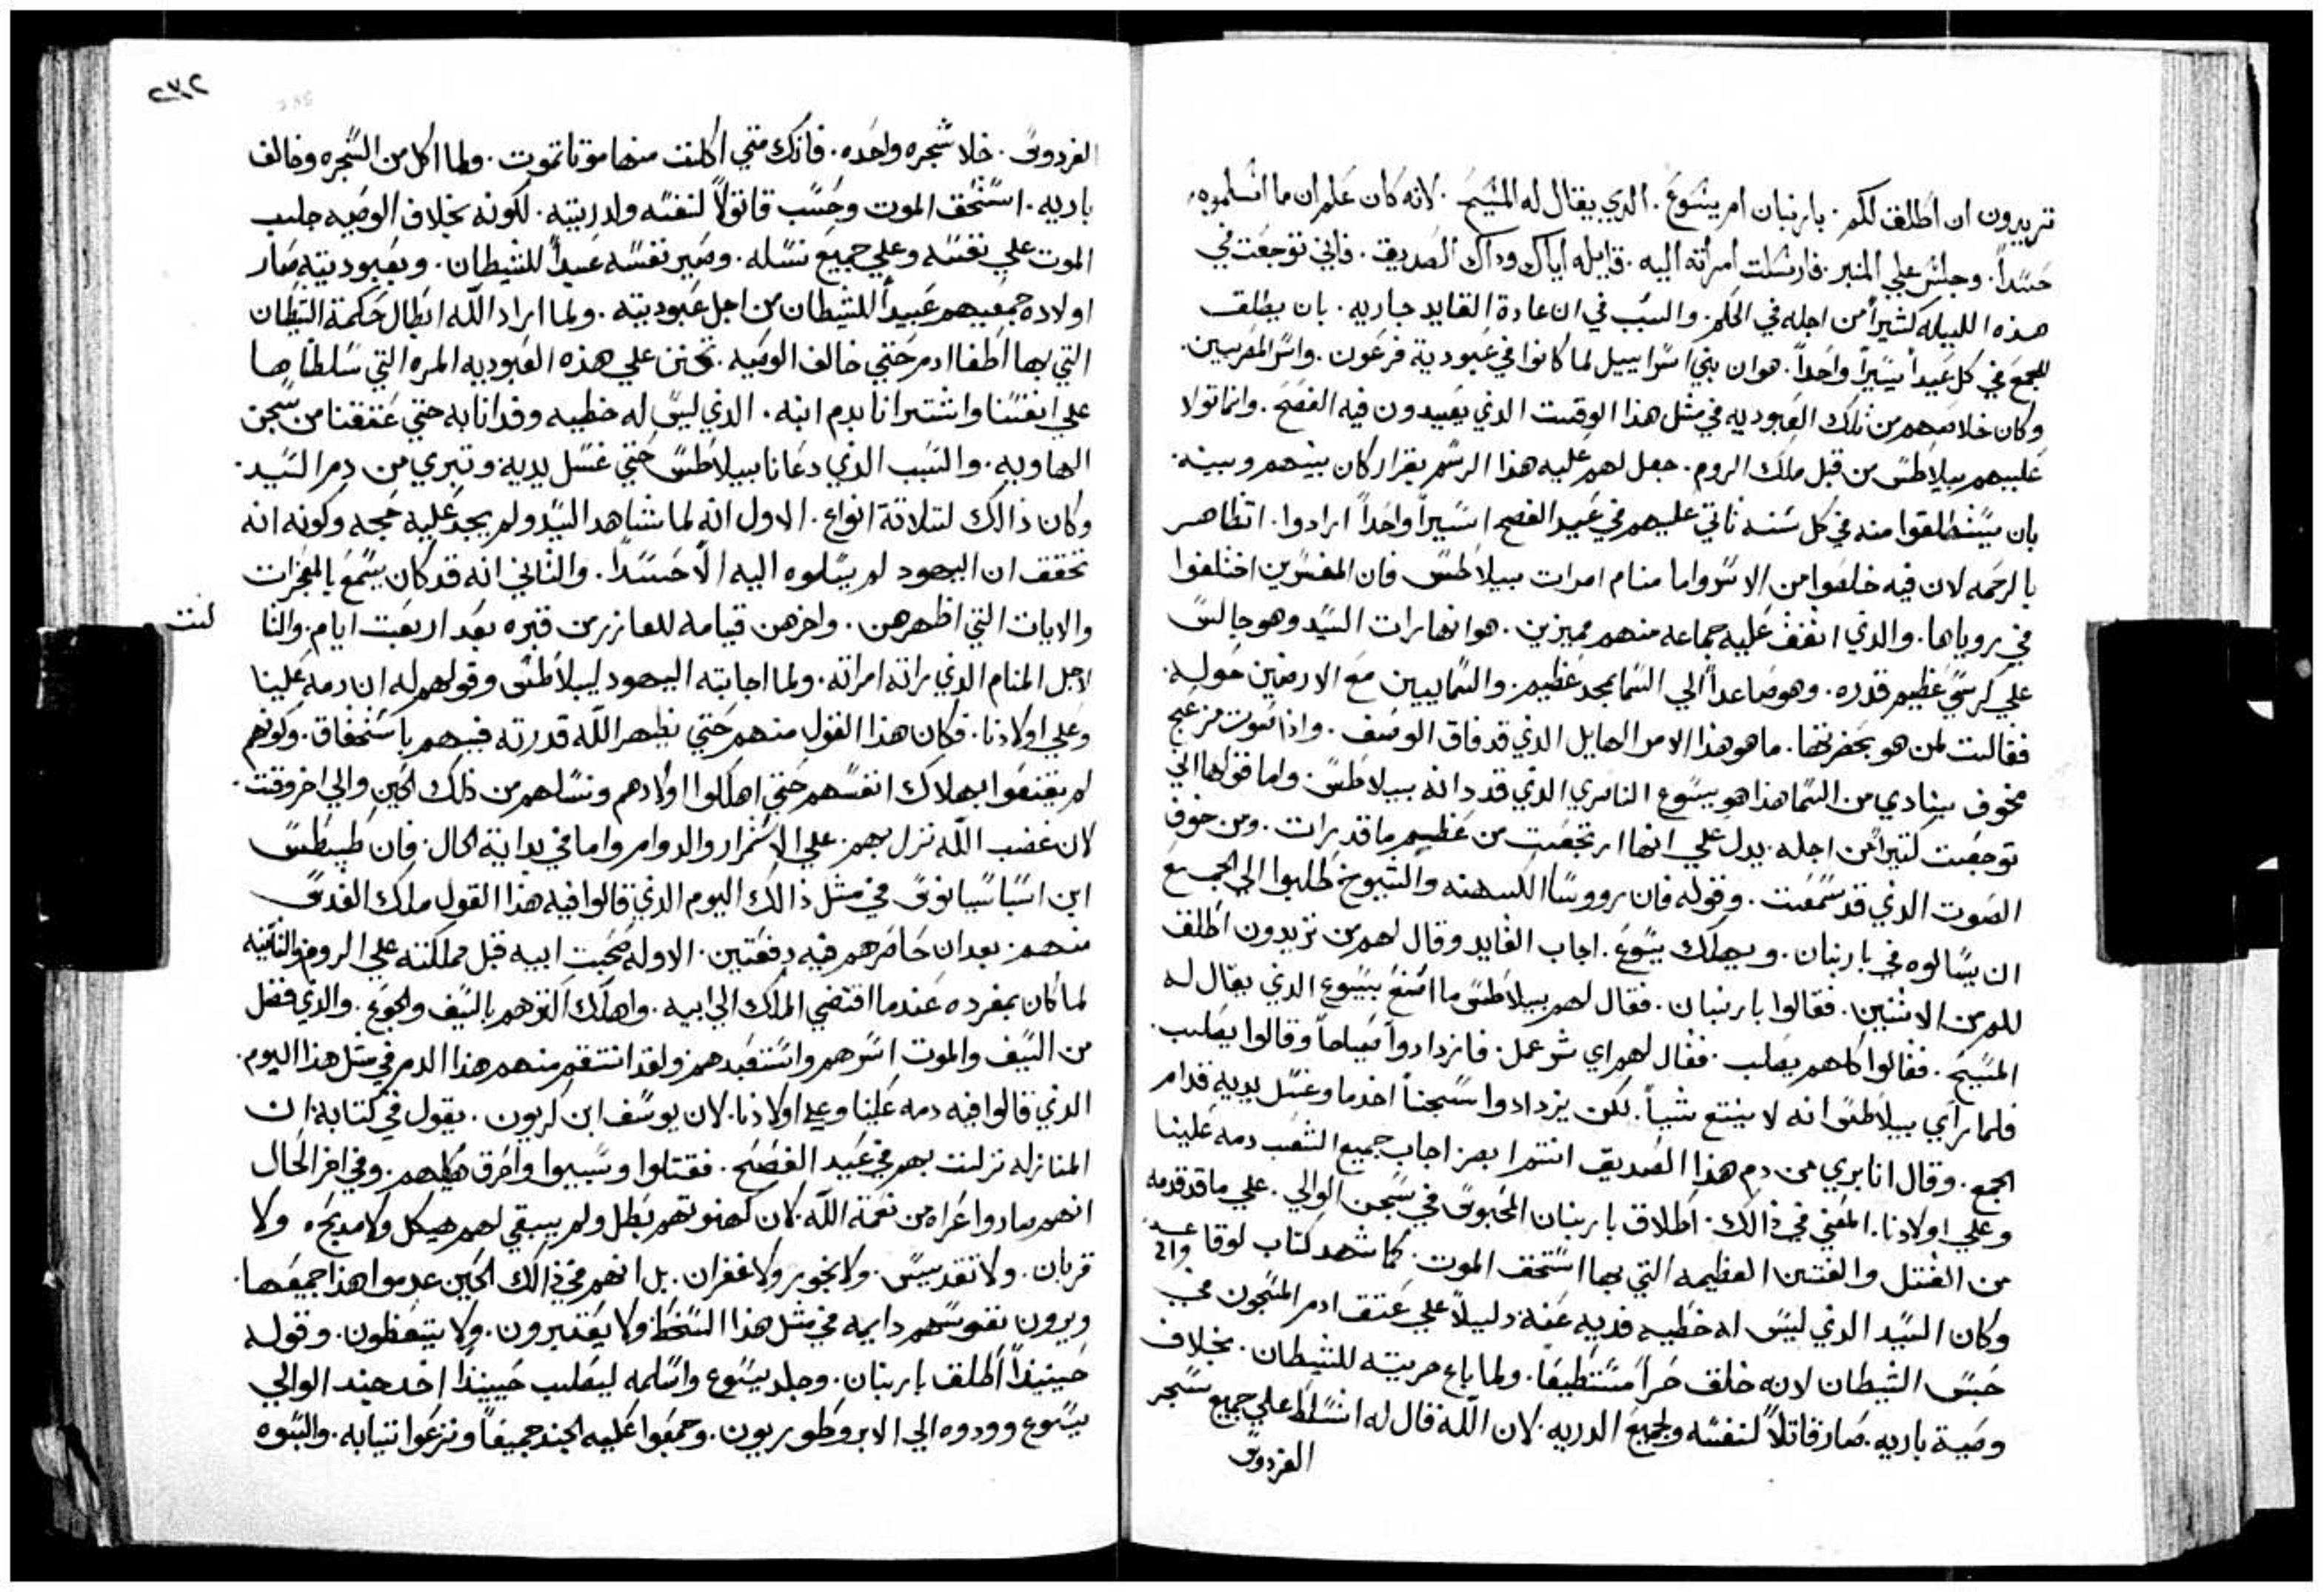 تريدون ان اطلق لكم. باربنان ام يسوع. الدي يقال له المسيح. لانه كان علم ان ما اسلموه
حسداً. وجلس علي المنبر. فارسلت امرأته اليه. قايله اياك وداك الصديق. فاني توجعت في
هذه الليله كثيراً من اجله في الحلم. والسبب في ان عادة القايد جاريه. بان يطلق
للجمع في كل عيداً يسيراً واحداً. هو ان بني اسراييل لما كانوا في عبودية فرعون. واسر المصريين.
وكان خلاصهم من تلك العبوديه في مثل هذا الوقت الذي يعيدون فيه الفصح. وانما تولا
عليهم بيلاطس من قبل ملك الروم. جعل لهم عليه هذا الرسم بقرار كان بينهم وبينه.
بان يستطلقوا منه في كل سنه تاتي عليهم في عيد الفصح اسيراً واحداً ارادوا. اتظاهر
بالرحمه لان فيه خلصوا من الاسر واما منام امرات بيلاطس فان المفسرين اختلفوا
في روياها. والدي اتفف عليه جماعه منهم مميزين. هو انها رات السيد وهو جالس
علي كرسي عظيم قدره. وهو صاعداً الي السما بمجد عظيم. والسماييين مع الارضين حوله.
فقالت لمن هو بحضرتها. ما هو هذا الامر الهايل الذي قد فاق الوصف. واذا صوت مزعج
مخوف ينادي من السما هذا هو يسوع الناصري الذي قد دانه بيلاطس. واما قولها اني
توجعت كتيراً من اجله. يدل علي انها ارتجعت من عظيم ما قد رات. ومن خوف
الصوت الذي قد سمعت. وقوله فان رووسا الكهنه والشيوخ طلبوا الي الجمع
ان يسالوه في باربنان. ويهلك يسوع. اجاب القايد وقال لهم من تريدون اطلق
للم من الاثنين. فقالوا باربنان. فقال لهم بيلاطس ما اصنع بيسوع الذي يقال له
المسيح. فقالوا كلهم يصلب. فقال لهم اي شر عمل. فازدادوا صياحاً وقالوا يصلب.
فلما راي بيلاطس انه لا ينتع شياً. لكن يزدادوا سجناً اخد ما وغسل يديه قدام
الجمع. وقال انا بري من دم هذا الصديق انتم ابصر اجاب جميع الشعب دمه علينا
وعلي اولادنا. المعني في ذالك. اطلاق باربنان المحبوس في سجن الوالي. علي ما قد قدمه
من القتل والفتن العظيمه التي بها استحف الموت. كما شهد كتاب لوقا
وكان السيد الذي ليس له خطيه فديه عنه دليلاً علي عتق ادم المسجون في
حبس الشيطان لانه خلق حراً مستطيعاً. ولما باع حريته للشيطان. بخلاف
وصية باريه. صار قاتلاً لنفسه ولجميع الدريه. لان الله قال له اتسلط علي جميع شجر
الفردوس
٢٣٢
الفردوس. خلا شجره واحده. فانك متي اكلت منها موتا تموت. ولما اكل من الشجره وخالف
باريه. استحق الموت وحسب قاتولاً لنفسه ولدريته. لكونه بخلاف الوصيه جلب
الموت علي نفسه وعلي جميع نسله. وصير نفسه عبداً للشيطان. وبعبوديته صار
اولاده جميعهم عبيداً للشيطان من اجل عبوديته. ولما اراد الله ابطال حكمة الشيطان
التي بها اطغا ادم حتي خالف الوصيه. تحنن علي هذه العبوديه المره التي سلطناها
علي انفسنا واشترانا بدم ابنه. الذي ليس له خطيه وفدانا به حتي عتقنا من سجن
الهاويه. والسبب الذي دعانا بيلاطس حتي غسل يديه وتبري من دم السيد.
وكان ذالك لتلاتة انواع. الاول انه لما شاهد السيد ولم يجد عليه حجه وكونه انه
تحقق ان اليهود لم يسلموه اليه الا حسداً. والثاني انه قد كان يسمع بالمعجزات
والايات التي اظهرهن. واخرهن قيامه للعازر من قبره بعد اربعت ايام. والثا لت
لاجل المنام الذي راته امراته. ولما اجابته اليهود لبيلاطس وقولهم له ان دمه علينا
وعلي اولادنا. فكان هذا القول منهم حتي يظهر الله قدرته فيهم باستحقاق. وكونهم
لم يقتنعوا بهلاك انفسهم حتي اهلكوا اولادهم ونسلهم من ذلك الحين والي اخر وقت.
لان غضب الله نزل بهم. علي الاستمرار والدوام واما في بداية الحال. فان طيطس
ابن اسباسيانوس في مثل ذالك اليوم الذي قالوا فيه هذا القول ملك القدس
منهم. بعد ان حاصرهم فيه دفعتين. الاوله صحبت ابيه قبل مملكته علي الروم والثانيه
لما كان بمفرده عندما افتضي الملك الي ابيه. واهلك اكترهم بالسيف والجوع. والدي فضل
من السيف والموت اسرهم واستعبدهم ولقد انتقم منهم هذا الدم في مثل هذا اليوم.
الدي قالوا فيه دمه علينا وعلي اولادنا. لان يوسف ابن كريون. يقول في كتابه ان
المنازله نزلت بهم في عيد الفصح. فقتلوا وسبيوا واحرق هيكلهم. وفي اخر الحال
انهم صاروا عراه من نعمة الله. لان كهنوتهم بطل ولم يبقي لهم هيكل ولا مديحه ولا
قربان. ولا تقديس. ولا بخور ولا غفران. بل انهم في ذالك الحين عدموا هذا جميعها.
ويرون نفوسهم دايمه في مثل هذا السخط ولا يعتبرون. ولا يتيقظون. وقوله
حينيذاً اطلق باربنان. وجلد يسوع واسلمه ليصلب حينيذاً اخد جند الوالي
يسوع وودوه الي الابروطوريون. وجمعوا عليه الجند جميعاً ونزعوا تيابه. والبسوه